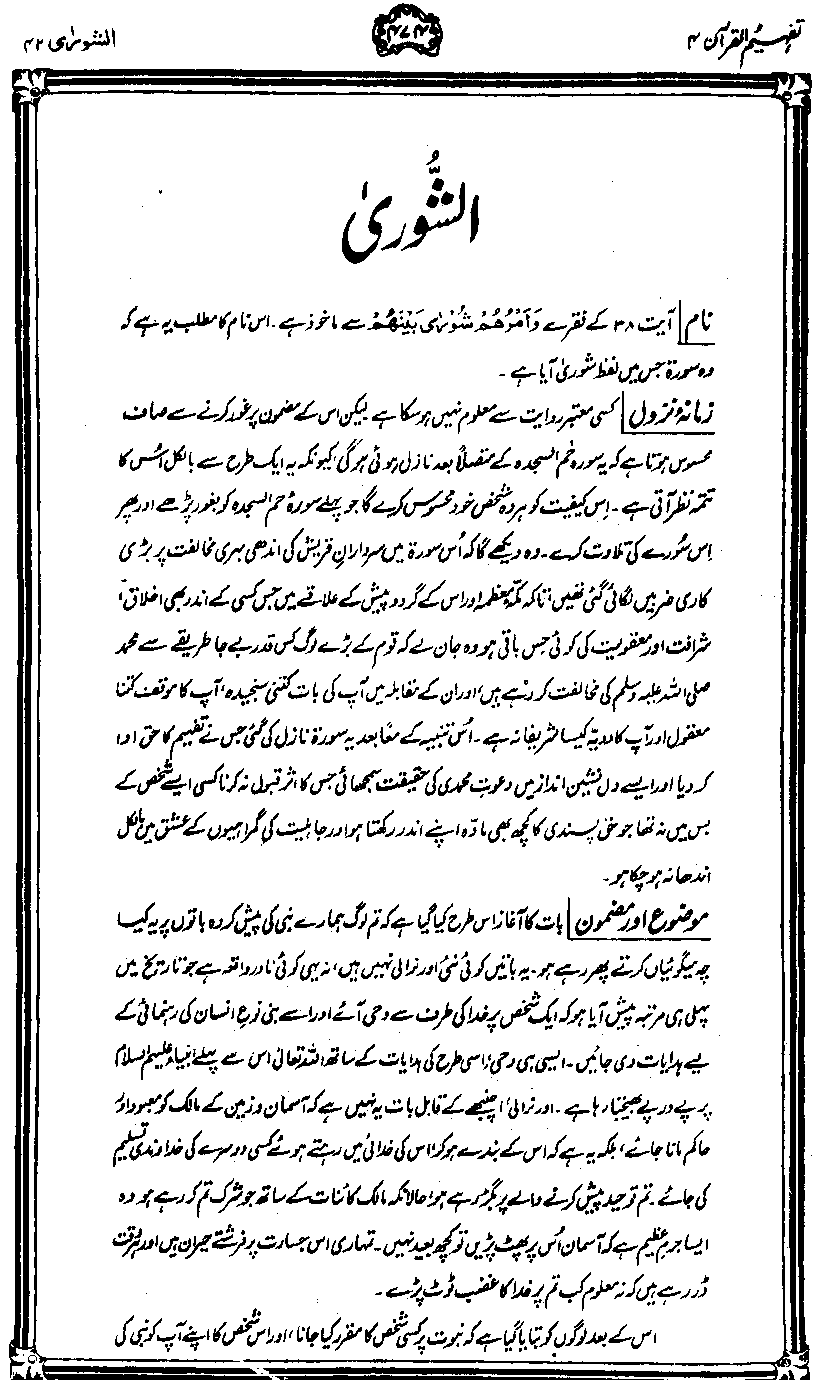 تفہیم القرآن ۴
۴۷۴
الشورٰی ۴۲
الشُّورٰی
نام آیت ۳۸ کے فقرے وَاَمْرُهُمْ شُوْرٰى بَيْنَهُمْ سے ماخوذ ہے۔ اس نام کا مطلب یہ ہے کہ
وہ سورۃ جس میں لفظ شوریٰ آیا ہے۔
زمانۂ نزول کسی معتبر روایت سے معلوم نہیں ہو سکا ہے لیکن اس کے مضمون پر غور کرنے سے صاف
محسوس ہوتا ہے کہ یہ سورہ حٰم السجدہ کے متصلاً بعد نازل ہوئی ہوگی، کیونکہ یہ ایک طرح سے بالکل اُس کا
تتمہ نظر آتی ہے۔ اِس کیفیت کو ہر وہ شخص خود محسوس کرے گا جو پہلے سورۂ حم السجدہ کو بغور پڑھے اور پھر
اِس سُورے کی تلاوت کرے۔ وہ دیکھے گا کہ اُس سورۃ میں سردارانِ قریش کی اندھی بہری مخالفت پر بڑی
کاری ضربیں لگائی گئی تھیں، تاکہ مکۂ معظمہ اور اس کے گردو پیش کے علاقے میں جس کسی کے اندر بھی اخلاق،
شرافت اور معقولیت کی کوئی حس باقی ہو وہ جان لے کہ قوم کے بڑے لوگ کس قدر بے جا طریقے سے محمد
صلی اللہ علیہ وسلم کی مخالفت کر رہے ہیں، اور ان کے مقابلہ میں آپ کی بات کتنی سنجیدہ، آپ کا موقف کتنا
معقول اور آپ کا رویّہ کیسا شریفانہ ہے۔ اُس تنبیہ کے معًا بعد یہ سورۃ نازل کی گئی جس نے تفہیم کا حق ادا
کر دیا اور ایسے دل نشین انداز میں دعوتِ محمدی کی حقیقت سمجھائی جس کا اثر قبول نہ کرنا کسی ایسے شخص کے
بس میں نہ تھا جو حق پسندی کا کچھ بھی مادّہ اپنے اندر رکھتا ہو اور جاہلیت کی گمراہیوں کے عشق میں بالکل
اندھا نہ ہو چکا ہو۔
موضوع اور مضمون بات کا آغاز اس طرح کیا گیا ہے کہ تم لوگ ہمارے نبی کی پیش کردہ باتوں پر یہ کیسا
چہ میگوئیاں کرتے پھر رہے ہو۔ یہ باتیں کوئی نئی اور نرالی نہیں ہیں، نہ یہی کوئی نادر واقعہ ہے جو تاریخ میں
پہلی ہی مرتبہ پیش آیا ہو کہ ایک شخص پر خدا کی طرف سے وحی آئے اور اسے بنی نوع انسان کی رہنمائی کے
لیے ہدایات دی جائیں۔ ایسی ہی وحی، اسی طرح کی ہدایات کے ساتھ اللہ تعالیٰ اس سے پہلے انبیاء علیہم السلام
پر پے در پے بھیجتا رہا ہے۔ اور نرالی، اچنبھے کے قابل بات یہ نہیں ہے کہ آسمان و زمین کے مالک کو معبود اور
حاکم مانا جائے، بلکہ یہ ہے کہ اس کے بندے ہو کر، اس کی خدائی میں رہتے ہوئے کسی دوسرے کی خداوندی تسلیم
کی جائے۔ تم توحید پیش کرنے والے پر بگڑ رہے ہو، حالانکہ مالک کائنات کے ساتھ جو شرک تم کر رہے ہو وہ
ایسا جرمِ عظیم ہے کہ آسمان اُس پر پھٹ پڑیں تو کچھ بعید نہیں۔ تمہاری اس جسارت پر فرشتے حیران ہیں اور ہر وقت
ڈر رہے ہیں کہ نہ معلوم کب تم پر خدا کا غضب ٹوٹ پڑے۔
اس کے بعد لوگوں کو بتایا گیا ہے کہ نبوت پر کسی شخص کا مقرر کیا جانا، اور اس شخص کا اپنے آپ کو نبی کی